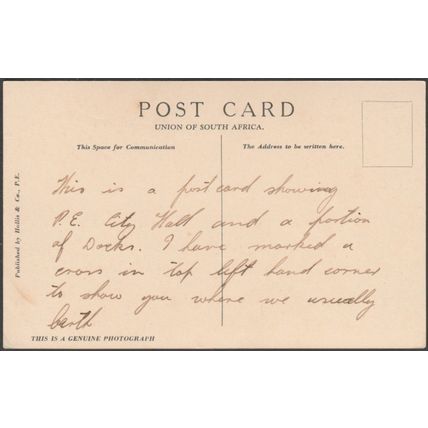 POST CARD
UNION OF SOUTH AFRICA.
This Space for Communication
The Address to be written here.
Published by Hollis & Co., P.E.
This is a post card showing
P.E. City Hall and a portion
of Docks. I have marked a
cross in top left hand corner
to show you where we usually
berth
THIS IS A GENUINE PHOTOGRAPH